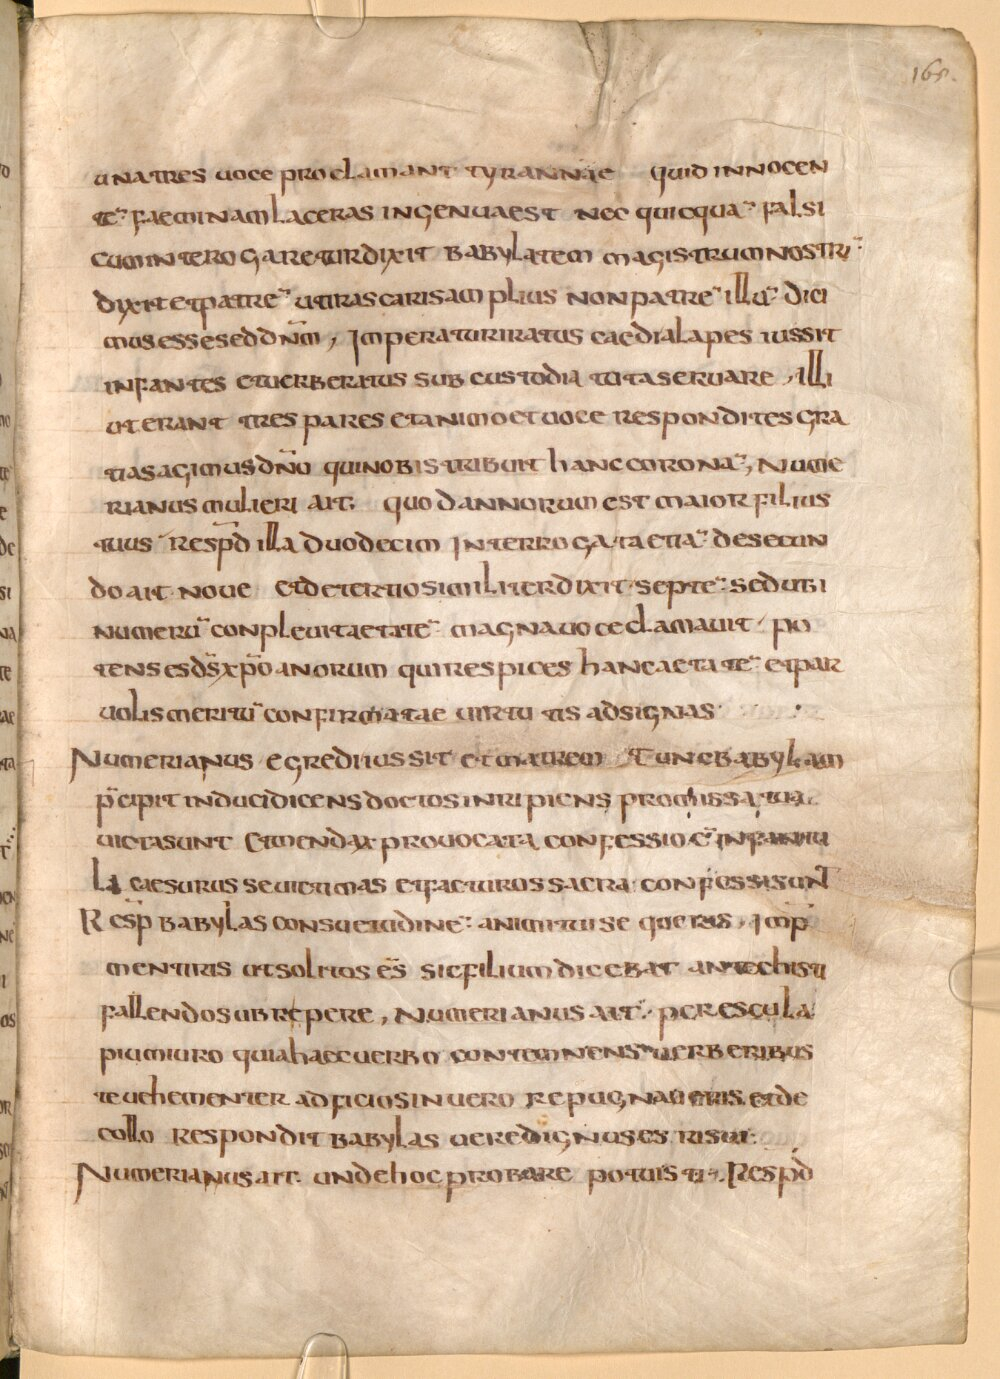 168.
una tres uoce proclamant tyrannae quid innocen
tē faeminam laceras ingenua est nec quicquā falsi
cum interogaretur dixit babylatem magistrum nostrū
dixit et patrē ut uras carisam plius non patrē illū dici
mus esse sed dn̄m, Imperatur iratus caedi alapes iussit
infantes et uerberatus sub custodia tuta seruare, illi
ut erant tres pares et animo et uoce respondites gra
tias agimus dn̄o qui nobis tribuit hanc coronā, Nume
rianus mulieri ait. quod annorum est maior filius
tuus resp̄d illa duodecim Interrogata etiā de secun
do ait noue et de tertio similiter dixit septē sed ubi
numerū conpleuit aetatē magna uoce clamauit po
tens es dn̄s xp̄oanorum qui respices hanc aetatē et par
uolis meritū confirmatae uirtutis adsignas
Numerianus egredi iussit et matrem Tunc babylam
p̄cipit induci dicens doctos inripiens promissa tua
uicta sunt Et mendax prouocata confessio ē infantu
la caesurus se uictimas et facturos sacra confessi sunt
Resp̄ babylas consuetudinē animi tui sequeris, Imp̄
mentiris ut solitos es sic filium dicebat antechisti
fallendo subrepere, Numerianus ait. per escula
pium iuro quia haec uerbo contemnens uerberibus
te uehementer adficio sin uero repugnaueris et de
collo respondit babylas uere dignus es risui
Numerianus ait. unde hoc probare potuisti. Resp̄d